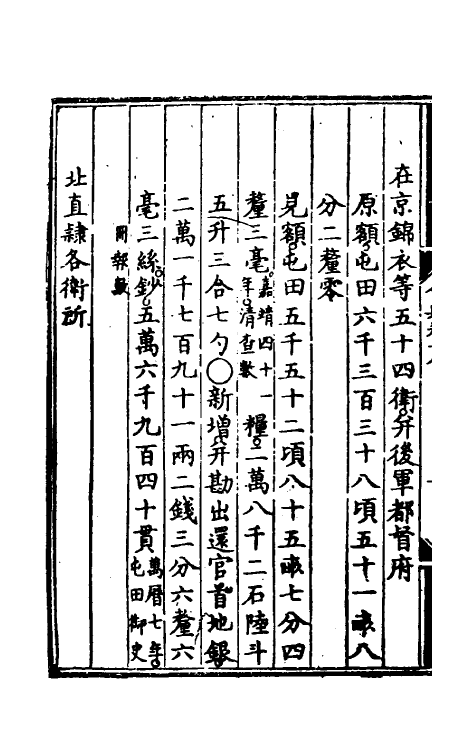 在京錦衣等五十四衛并後軍都督府
原額屯田六千三百三十八頃五十一畝八
分二釐零
見額屯田五千五十二頃八十五畝七分四
釐三毫嘉靖四十一年清查數糧二萬八千二石陸斗
五升三合七勺○新增并勘出還官首地銀
二萬一千七百九十一兩二錢三分六釐六
毫三絲鈔五萬六千九百四十貫萬曆七年屯田御史
冊報數
北直隸各衛所